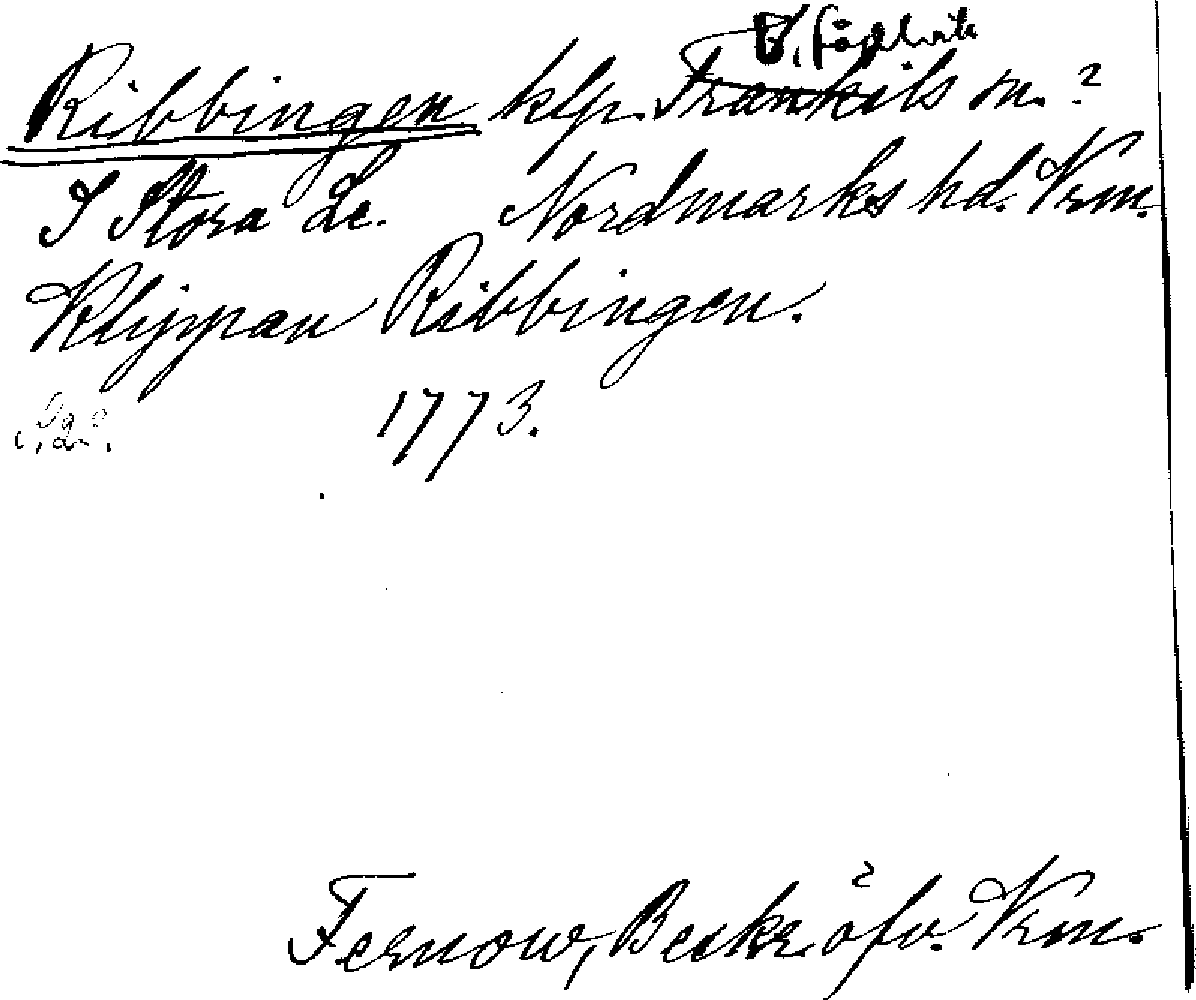 Ribbingen klp. Trankils sn. ?
I Stora Le. Nordmarks hd. Vrm.
Klippan Ribbingen.
1773.
Fernow, Beskr. öfv. Vrm.